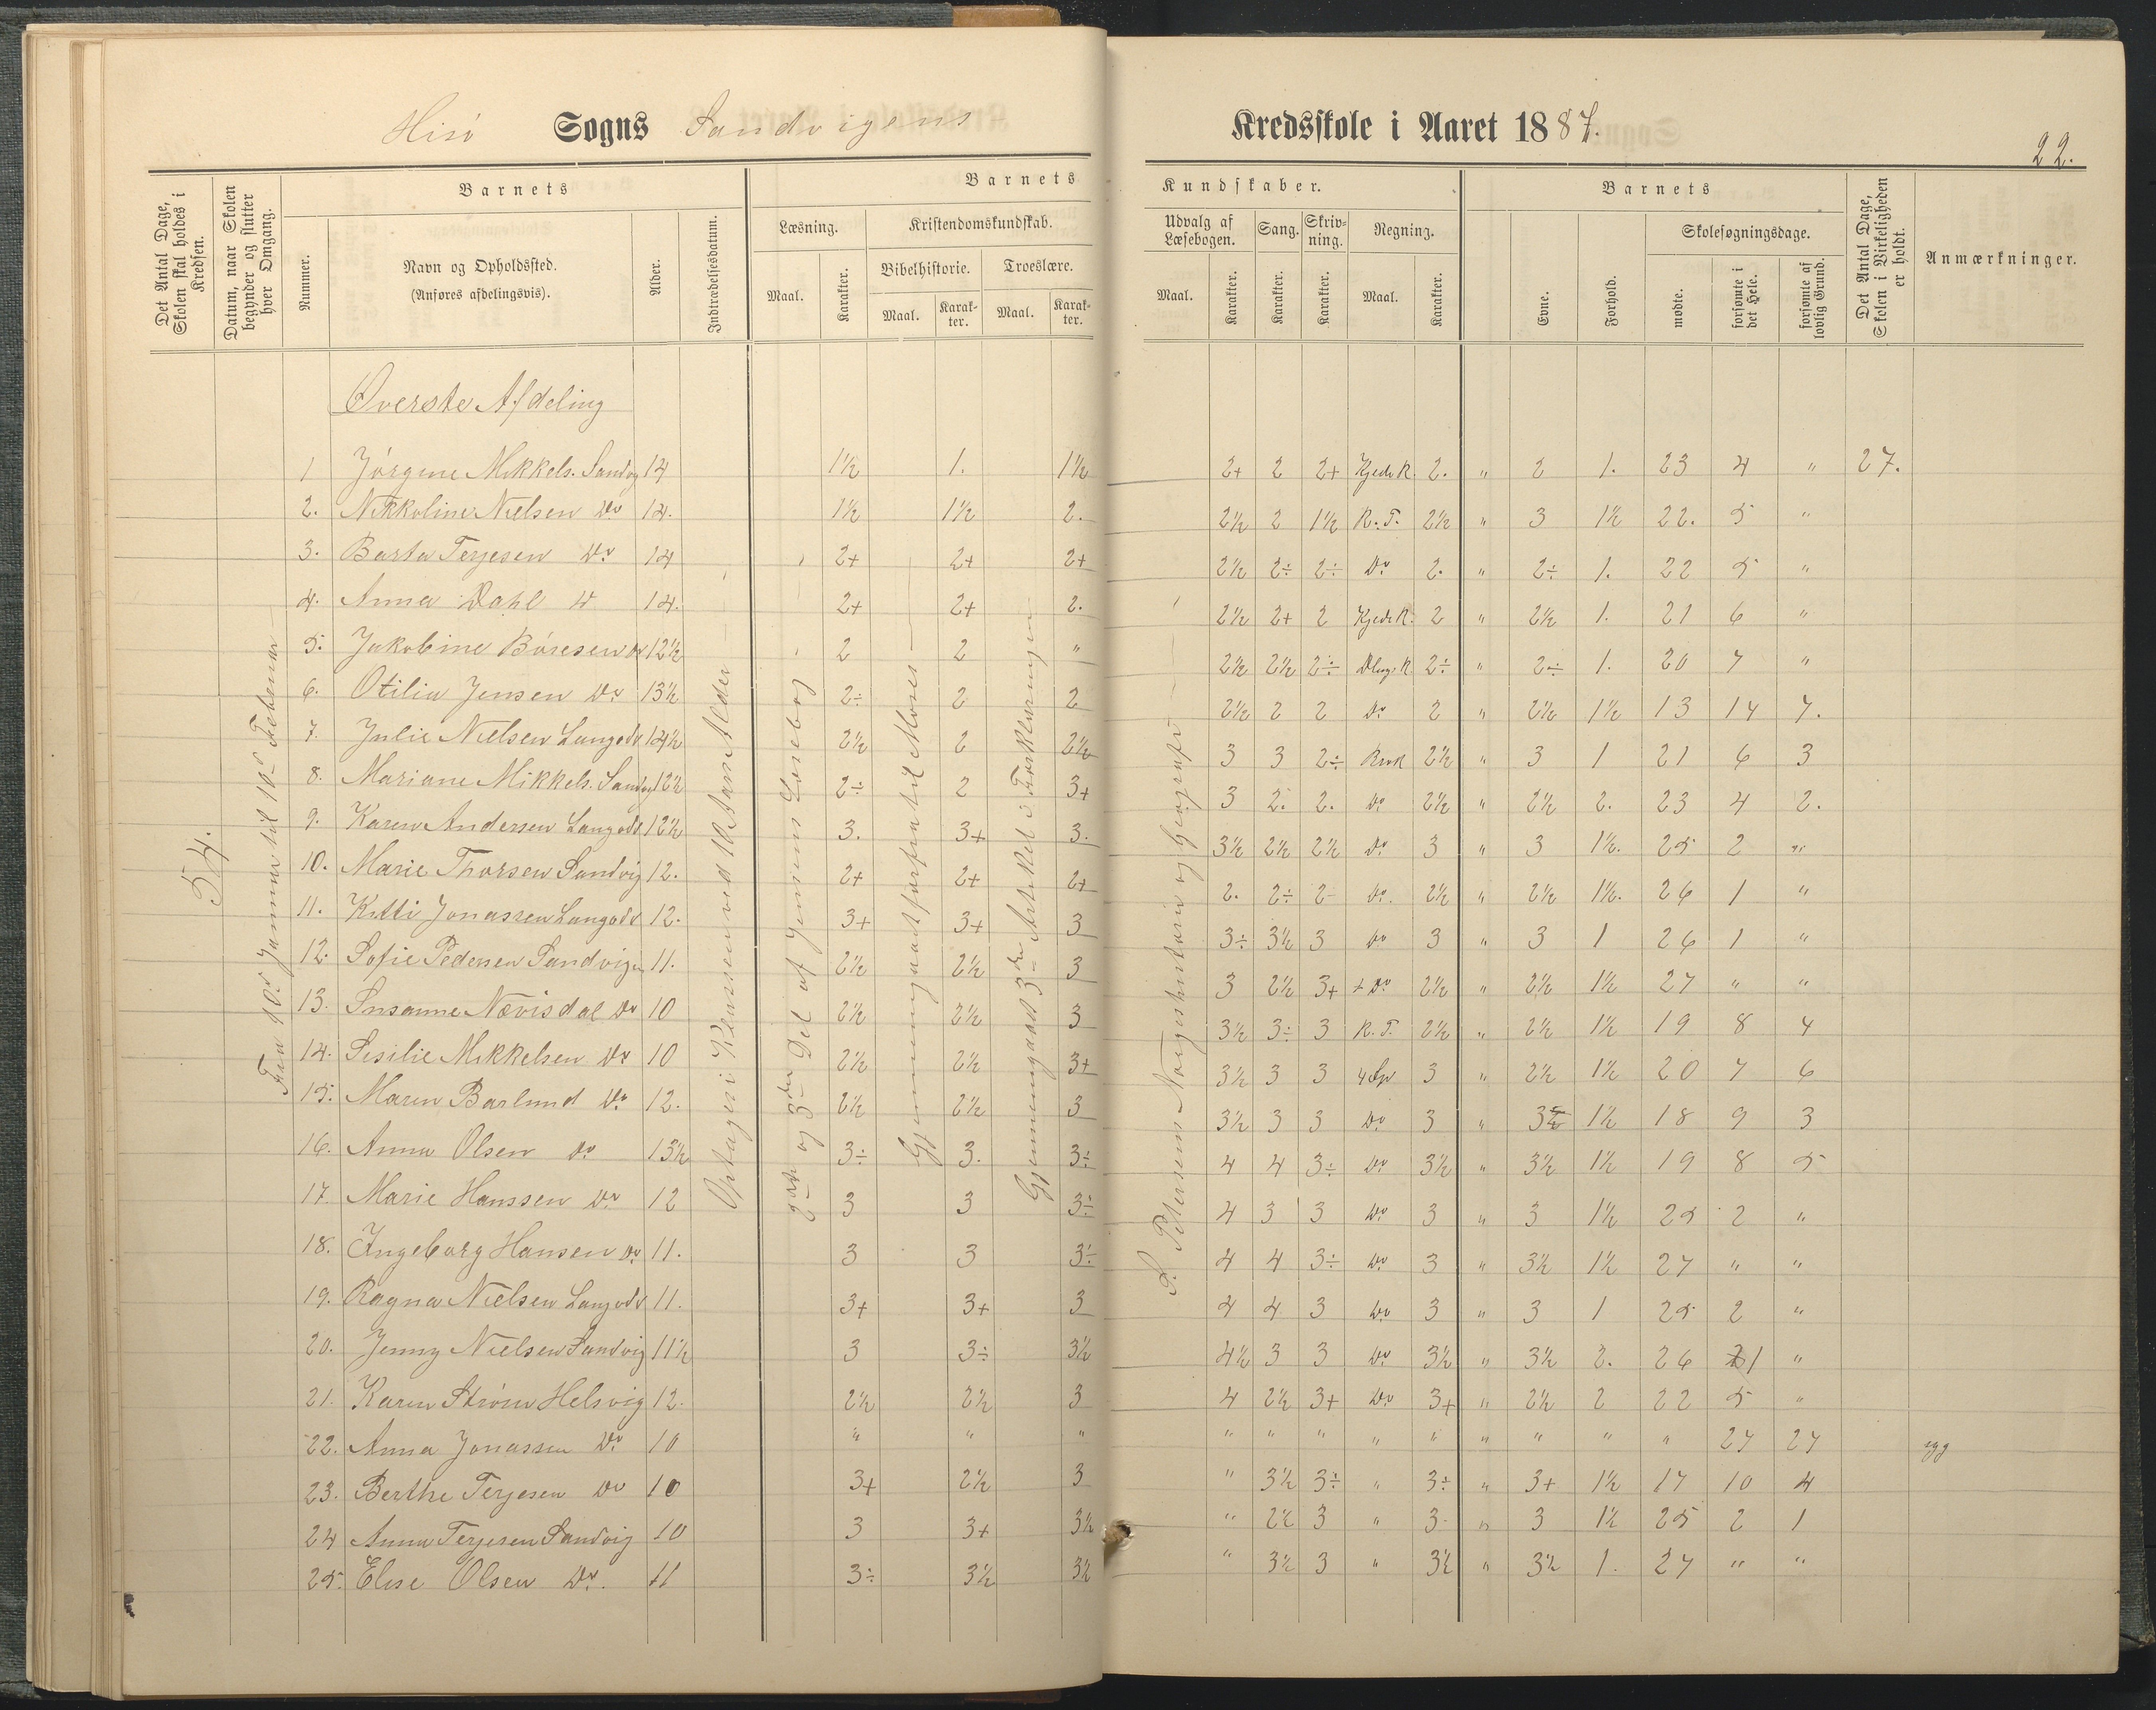 Hisö Sogns Sandvigens Kredsskole i Aaret 1887.
22.
Det Antal Dage, Skolen skal holdes i Kredsen.
Datum, naar Skolen begynder og slutter hver Omgang.
Barnets
Nummer.
Navn og Opholdssted.
(Anføres afdelingsvis).
Alder.
Indtrædelsesdatum.
Barnets Kundskaber.
Læsning.
Maal.
Karakter.
Kristendomskundskab.
Bibelhistorie.
Maal.
Karakter.
Troeslære.
Maal.
Karakter.
Udvalg af Læsebogen.
Maal.
Karakter.
Sang.
Karakter.
Skrivning.
Karakter.
Regning.
Maal.
Karakter.
Barnets
Evne.
Forhold.
Skolesøgningsdage.
mødte.
forsømte i det Hele.
forsømte af lovlig Grund.
Det Antal Dage, Skolen i Virkeligheden er holdt.
Anmærkninger.
54.
Fra 10d Januar til 10d Februar
Optages i Klassen ved 10 Aars Alder
2det og 3die Del af Jensens Læsebog
Gjennemgaaet forfra til Moses
Gjennemgaaet 3die Artikel i Forklaringen
S. Petersens Norgeshistorie og Geografi
Øverste Afdeling
1 Jörgine Mikkels. Sandvg 14 1½ 1. 1½ 2+ 2 2+ Kjede R. 2. " 2 1. 23 4 " 27.
2. Nikkoline Nielsen Do 14. 1½ 1½ 2. 2½ 2 1½ R. T. 2½ " 3 1½ 22. 5 "
3. Barta Terjesen Do 14 2+ 2+ 2+ 2½ 2÷ 2÷ Do 2. " 2÷ 1. 22 5 "
4. Anna Dahl Do 14. 2+ 2+ 2. 2½ 2+ 2 Kjede R. 2 " 2½ 1. 21 6 "
5. Jakobine Böresen Do 12½ 2 2 " 2½ 2½ 2÷ 2÷ " 2÷ 1. 20 7 "
6. Otilia Jensen Do 13½ 2÷ 2 2 2½ 2 2 Do 2 " 2½ 1½ 13 14 7.
7. Julie Nielsen Langodd 14½ 2½ 2 2½ 3 3 2÷ Brøk 2½ " 3 1 21 6 3
8. Mariane Mikkels. Sandvg 12½ 2÷ 2 3+ 3 2. 2. Do 2½ " 2½ 2. 23 4 2.
9. Karen Andersen Langodd 12½ 3. 3+ 3. 3½ 2½ 2½ Do 3 " 3 1½. 25 2 "
10. Marie Thorsen Sandvig 12. 2+ 2+ 2+ 2. 2÷ 2- Do. 2½ " 2½ 1½. 26 1 "
11. Kitti Jonassen Langodd 12. 3+ 3+ 3 3÷ 3½ 3 Do 3 " 3 1 26 1 "
12. Sofie Pedersen Sandvigen 11. 2½ 2½ 3 3 2½ 3+ + Do 2½ " 2½ 1½ 27 " "
13. Susanne Nævisdal Do 10 2½ 2½ 3 3½ 3÷ 3 R. T. 2½ " 2½ 1½ 19 8 4
14. Sesilie Mikkelsen Do 10 2½ 2½ 3+ 3½ 3 3 4 Sp 3 " 2½ 1½ 20 7 6
15. Maren Barlund Do. 12. 2½ 2½ 3 3½ 3 3 Do 3 " 1½ 18 9 3
16. Anna Olsen Do 13½ 3÷ 3. 3÷ 4 4 3÷ Do 3½ " 3½ 1½ 19 8 5
17 Marie Hanssen Do 12 3 3 3÷ 4 3 3 Do 3 " 3 1½ 25 2 "
18. Ingeborg Hansen Do 11. 3 3 3÷ 4 4 3÷ Do 3 " 3½ 1½ 27 " "
19. Ragna Nielsen Langodd 11. 3+ 3+ 3 4 4 3 Do 3 " 3 1 25 2 "
20. Jenny Nielsen Sandvig 11½ 3 3÷ 3½ 4½ 3 3 Do 3½ " 3½ 2. 26 1 "
21. Karen Ström Helsvig 12. 2½ 2½ 3 4 2½ 3+ Do 3+ " 2½ 2 22 5 "
22. Anna Jonassen Do 10 " " " " " " " " " " " " 27 27 syg
23. Berthe Terjesen Do 10 3+ 2½ 3 " 3½ 3÷ " 3÷ " 3+ 1½ 17 10 4
24 Anna Terjesen Sandvig 10 3 3+ 3½ " 2½ 3 " 3- " 3 1½ 25 2 1
25. Elise Olsen Do. 11 3÷ 3½ 3½ " 3½ 3 " 3½ " 3½ 1. 27 " "